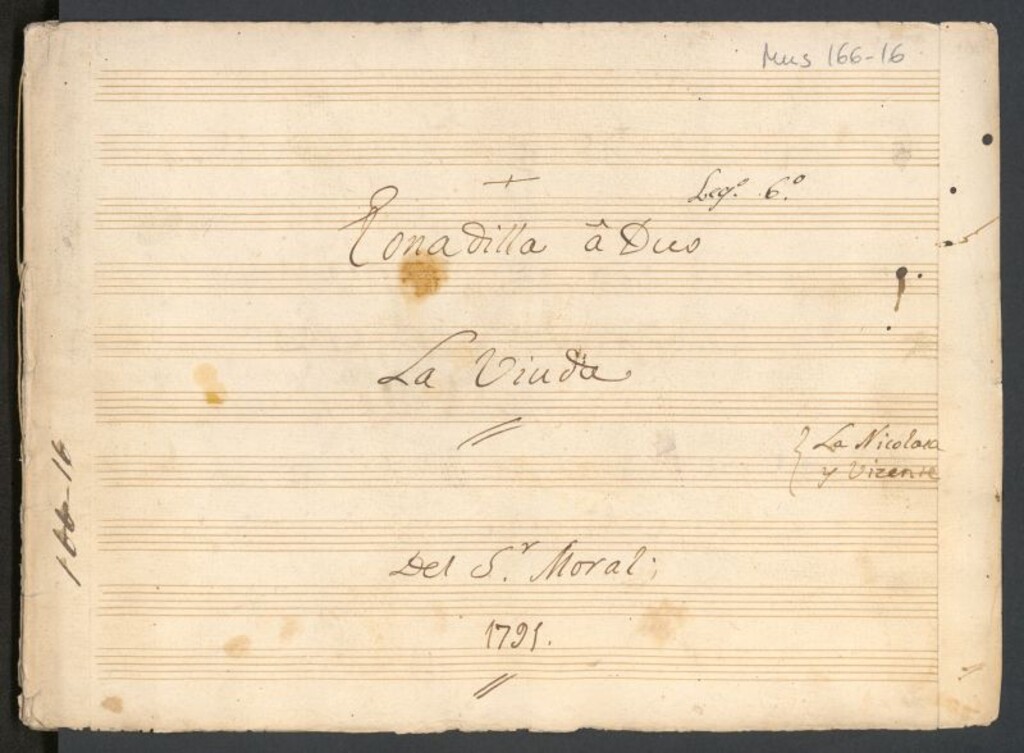 Mus 166-16
Leg.º 6.º
Tonadilla â Duo
La Viuda
{ La Nicolasa
y Vizente
Del S.r Moral;
1791.
166-16